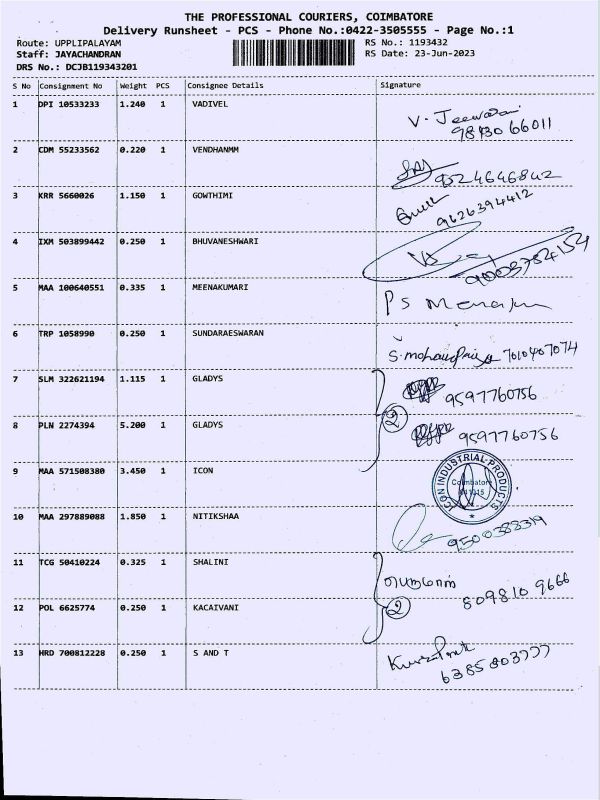 THE PROFESSIONAL COURIERS, COIMBATORE
Delivery Runsheet - PCS - Phone No.:0422-3505555 - Page No.:1
Route: UPPLIPALAYAM
RS No.: 1193432
Staff: JAYACHANDRAN
RS Date: 23-Jun-2023
DRS No.: DCJB119343201
S No Consignment No Weight PCS Consignee Details Signature
1 DPI 10533233 1.240 1 VADIVEL
V. Jeewadai
98430 66011
2 CDM 55233562 0.220 1 VENDHANMM
9524646842
3 KRR 5660026 1.150 1 GOWTHIMI
9626394412
4 IXM 503899442 0.250 1 BHUVANESHWARI
9003754154
5 MAA 100640551 0.335 1 MEENAKUMARI
PS
6 TRP 1058990 0.250 1 SUNDARAESWARAN
S. mohanapriya 7010407074
7 SLM 322621194 1.115 1 GLADYS
9597760756
2
8 PLN 2274394 5.200 1 GLADYS
9597760756
9 MAA 571508380 3.450 1 ICON
ICON INDUSTRIAL PRODUCTS
Coimbatore
10 MAA 297889088 1.850 1 NITIKSHAA
9500388319
11 TCG 50410224 0.325 1 SHALINI
பெருமாள்
809810 9666
2
12 POL 6625774 0.250 1 KACAIVANI
13 HRD 700812228 0.250 1 S AND T
6385803777